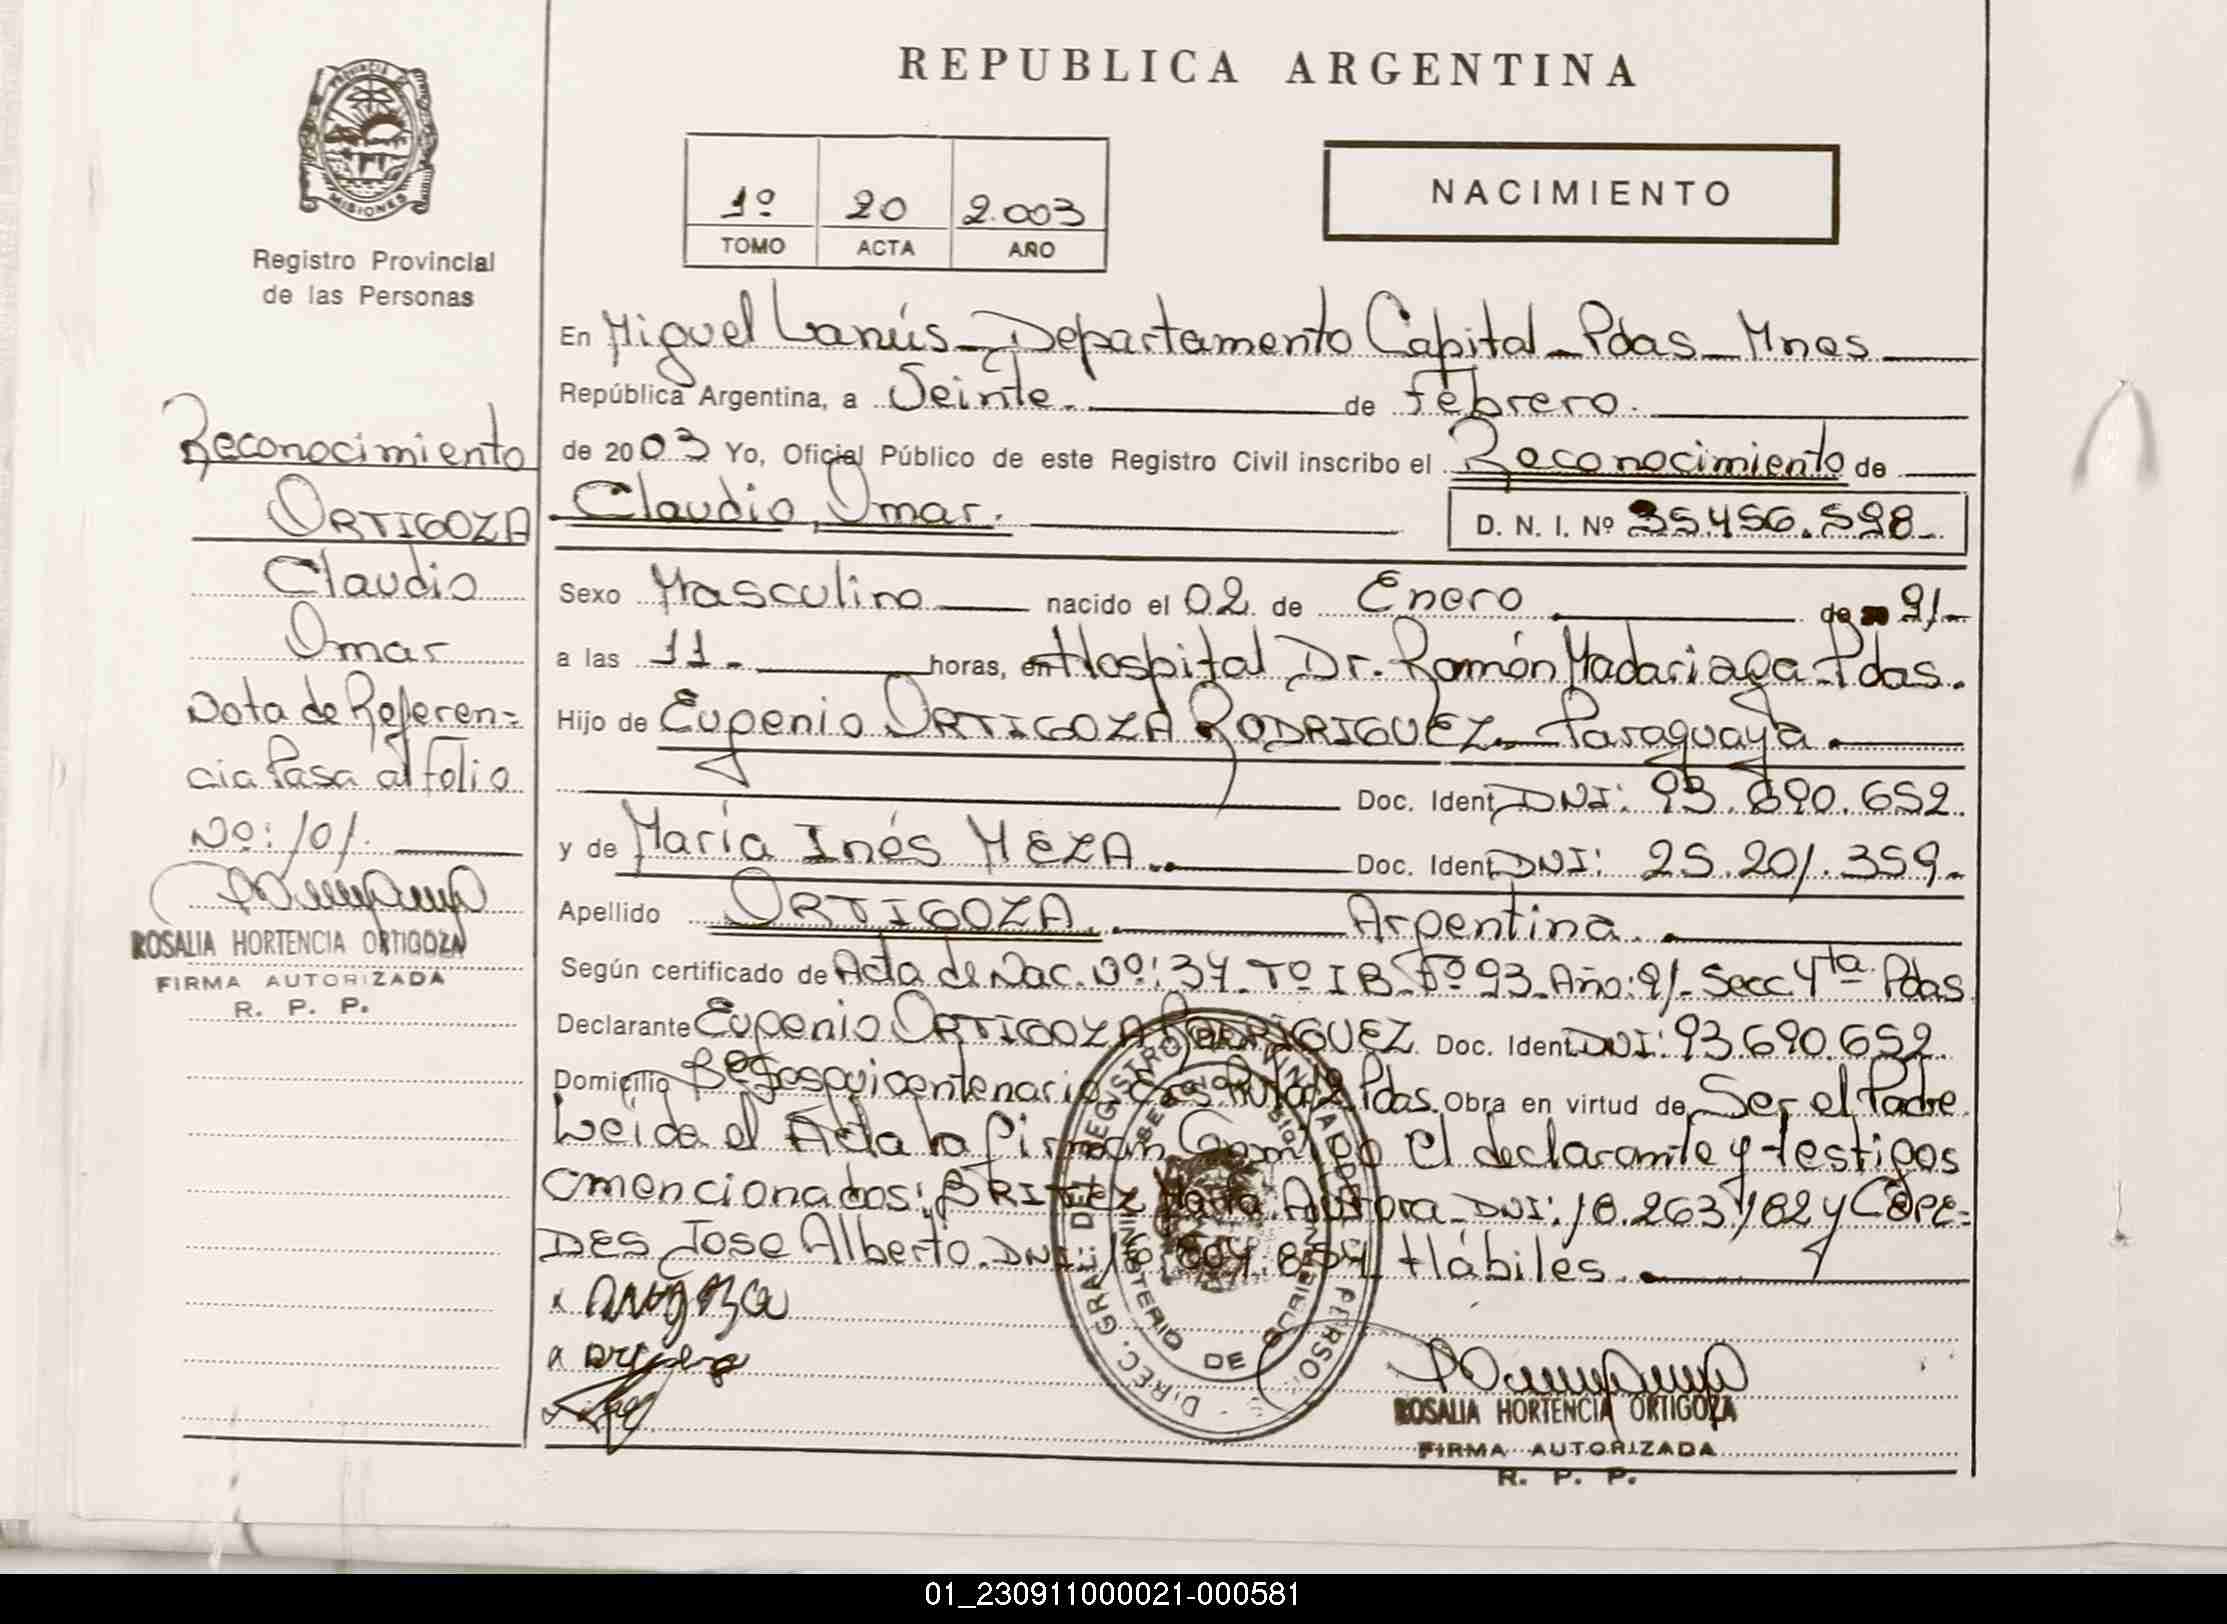 REPUBLICA ARGENTINA
PROVINCIA DE
MISIONES
Registro Provincial
de las Personas
1º 20 2.003
TOMO ACTA AÑO
NACIMIENTO
En Miguel Lanús - Departamento Capital - Pdas - Mnes
República Argentina, a Veinte. de Febrero.
de 2003 Yo, Oficial Público de este Registro Civil inscribo el Reconocimiento de
Claudio, Omar. D. N. I. Nº 35.456.598.-
Sexo Masculino nacido el 02 de Enero de 91.-
a las 11.- horas, en Hospital Dr. Ramón Madariaga - Pdas.
Hijo de Eugenio ORTIGOZA RODRIGUEZ.- Paraguaya.
Doc. Ident. DNI: 93.690.652.
y de María Inés MEZA. Doc. Ident. DNI: 25.201.359.-
Apellido ORTIGOZA. Argentina.
Según certificado de Acta de Nac. Nº: 37. Tº I B. Fº 93. Año: 91- Secc. 4ta. Pdas
Declarante Eugenio ORTIGOZA RODRIGUEZ Doc. Ident. DNI: 93.690.652.
Domicilio Bº Sesquicentenario Pdas. Obra en virtud de Ser el Padre
Leida el Acta la firman Conmigo el declarante y testigos
mencionados: BRITEZ María Aurora DNI: 18.263.182 y CÉPE-
DES Jose Alberto. DNI: Hábiles.
Reconocimiento
ORTIGOZA
Claudio
Omar
Nota de Referen-
cia Pasa al Folio
Nº: 101.
ROSALIA HORTENCIA ORTIGOZA
FIRMA AUTORIZADA
R. P. P.
ROSALIA HORTENCIA ORTIGOZA
FIRMA AUTORIZADA
R. P. P.
01_230911000021-000581